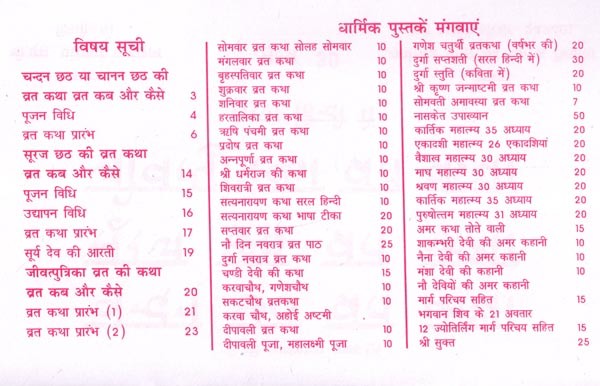 विषय सूची
चन्दन छठ या चानन छठ की
व्रत कथा व्रत कब और कैसे 3
पूजन विधि 4
व्रत कथा प्रारंभ 6
सूरज छठ की व्रत कथा
व्रत कब और कैसे 14
पूजन विधि 15
उद्यापन विधि 16
व्रत कथा प्रारंभ 17
सूर्य देव की आरती 19
जीवत्पुत्रिका व्रत की कथा
व्रत कब और कैसे 20
व्रत कथा प्रारंभ (1) 21
व्रत कथा प्रारंभ (2) 23
धार्मिक पुस्तकें मंगवाएं
सोमवार व्रत कथा सोलह सोमवार 10
मंगलवार व्रत कथा 10
बृहस्पतिवार व्रत कथा 10
शुक्रवार व्रत कथा 10
शनिवार व्रत कथा 10
हरतालिका व्रत कथा 10
ऋषि पंचमी व्रत कथा 10
प्रदोष व्रत कथा 10
अन्नपूर्णा व्रत कथा 10
श्री धर्मराज की कथा 10
शिवरात्री व्रत कथा 10
सत्यनारायण कथा सरल हिन्दी 10
सत्यनारायण कथा भाषा टीका 20
सप्तवार व्रत कथा 20
नौ दिन नवरात्र व्रत पाठ 25
दुर्गा नवरात्र व्रत कथा 10
चण्डी देवी की कथा 15
करवाचौथ, गणेशचौथ 10
सकटचौथ व्रतकथा 10
करवा चौथ, अहोई अष्टमी
दीपावली व्रत कथा 10
दीपावली पूजा, महालक्ष्मी पूजा 10
गणेश चतुर्थी व्रतकथा (वर्षभर की) 20
दुर्गा सप्तशती (सरल हिन्दी में) 30
दुर्गा स्तुति (कविता में) 20
श्री कृष्ण जन्माष्टमी व्रत कथा 10
सोमवती अमावस्या व्रत कथा 7
नासकेत उपाख्यान 50
कार्तिक महात्म्य 35 अध्याय 20
एकादशी महात्म्य 26 एकादशियां 20
वैशाख महात्म्य 30 अध्याय 20
माघ महात्म्य 30 अध्याय 20
श्रवण महात्म्य 30 अध्याय 20
कार्तिक महात्म्य 35 अध्याय 20
पुरुषोत्तम महात्म्य 31 अध्याय 20
अमर कथा तोते वाली 15
शाकम्भरी देवी की अमर कहानी 10
नैना देवी की अमर कहानी 10
मंशा देवी की कहानी 10
नौ देवियों की अमर कहानी
मार्ग परिचय सहित 15
भगवान शिव के 21 अवतार
12 ज्योतिर्लिंग मार्ग परिचय सहित 15
श्री सुक्त 25